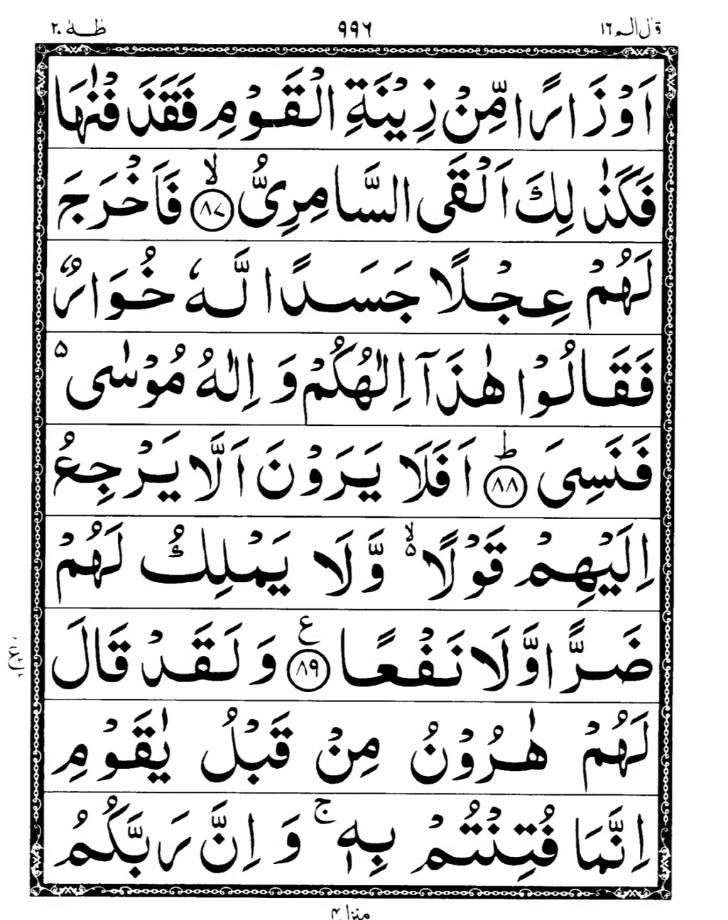 قال الم ١٦ ٩٩٦ طٰهٰ ٢٠
اَوْزَارًا مِّنْ زِيْنَةِ الْقَوْمِ فَقَذَفْنٰهَا
فَكَذٰلِكَ اَلْقَى السَّامِرِيُّ ۙ‏ ﴿٨٧﴾ فَاَخْرَجَ
لَهُمْ عِجْلًا جَسَدًا لَّهٗ خُوَارٌ
فَقَالُوْا هٰذَاۤ اِلٰهُكُمْ وَ اِلٰهُ مُوْسٰى ۵
فَنَسِىَ ؕ‏ ﴿٨٨﴾ اَفَلَا يَرَوْنَ اَلَّا يَرْجِعُ
اِلَيْهِمْ قَوْلًا ۙ۬ وَّ لَا يَمْلِكُ لَهُمْ
ضَرًّا وَّلَا نَفْعًا ﴿٨٩﴾ ع وَلَقَدْ قَالَ
لَهُمْ هٰرُوْنُ مِنْ قَبْلُ يٰقَوْمِ
اِنَّمَا فُتِنْتُمْ بِهٖ ۚ وَ اِنَّ رَبَّكُمُ
منزل ٤